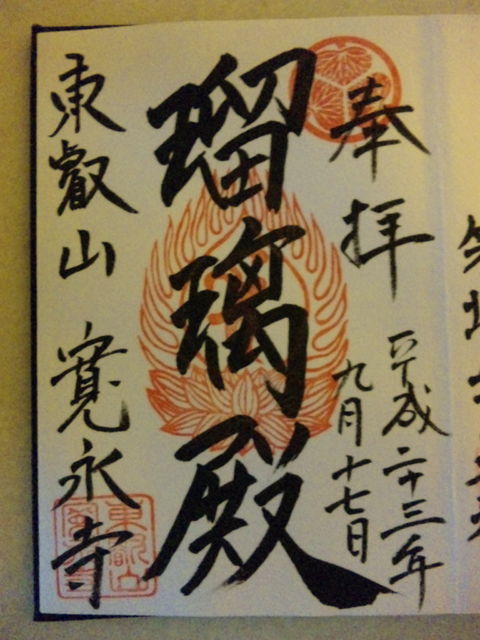 奉拝
平成二十三年
九月十七日
瑠璃殿
東叡山 寛永寺